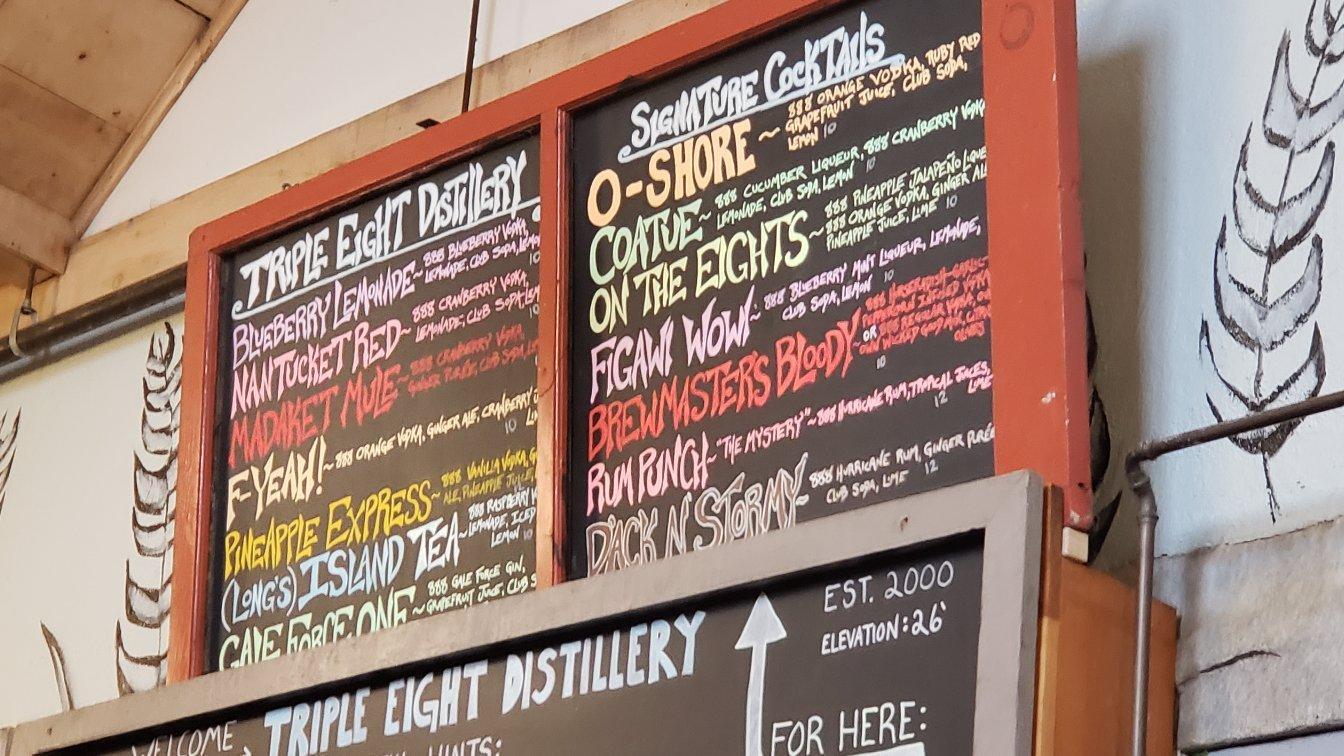 TRIPLE EIGHT DISTILLERY
BLUEBERRY LEMONADE~ 888 BLUEBERRY VODKA,
LEMONADE, CLUB SODA,
10
NANTUCKET RED~ 888 CRANBERRY VODKA,
LEMONADE, CLUB SODA,
10
MADAKET MULE~ 888 CRANBERRY VODKA,
GINGER PURÉE, CLUB SODA,
F-YEAH!~ 888 ORANGE VODKA, GINGER ALE, CRANBERRY
10
PINEAPPLE EXPRESS~ 888 VANILLA VODKA,
ALE, PINEAPPLE JUICE,
(LONG'S) ISLAND TEA~ 888 RASPBERRY
LEMONADE, ICED
LEMON 10
GALE FORCE ONE~ 888 GALE FORCE GIN,
GRAPEFRUIT JUICE, CLUB
SIGNATURE COCKTAILS
O-SHORE ~ 888 ORANGE VODKA, RUBY RED
GRAPEFRUIT JUICE, CLUB SODA,
LEMON 10
COATUE~ 888 CUCUMBER LIQUEUR, 888 CRANBERRY VODKA
LEMONADE, CLUB SODA, LEMON 10
ON THE EIGHTS~ 888 PINEAPPLE JALAPEÑO
888 ORANGE VODKA, GINGER
PINEAPPLE JUICE, LIME 10
FIGAWI WOW!~ 888 BLUEBERRY MINT LIQUEUR, LEMONADE,
CLUB SODA, LEMON 10
BREWMASTER'S BLOODY~ 888 HORSERADISH-GARLIC-
PEPPERCORN INFUSED VODKA
OR 888 REGULAR VODKA,
OWN WICKED GOOD
10
RUM PUNCH~ "THE MYSTERY"~ 888 HURRICANE RUM, TROPICAL JUICES,
LIME
12
D'ACK N' STORMY~ 888 HURRICANE RUM, GINGER PURÉE
CLUB SODA, LIME 12
EST. 2000
ELEVATION: 26'
WELCOME
TRIPLE EIGHT DISTILLERY
FOR HERE: